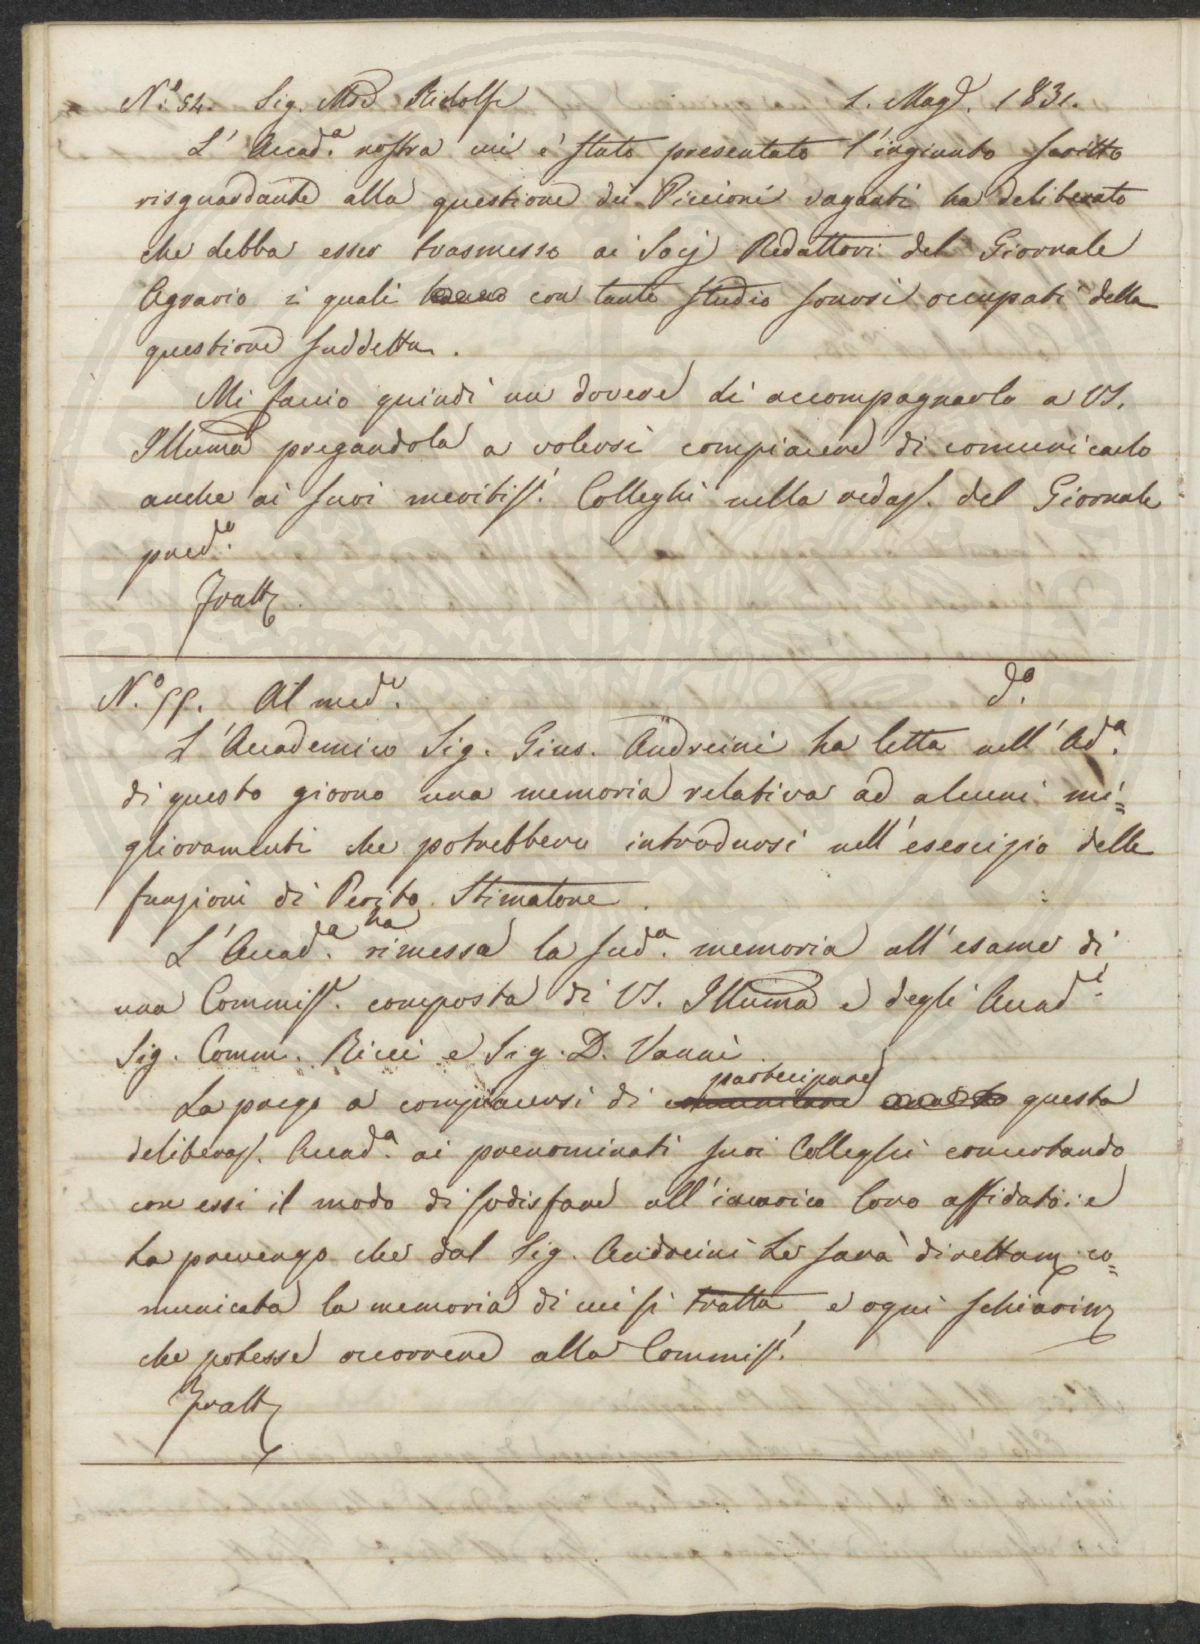 N.º 54. Sig. Mse Ridolfi 1. Magº. 1831.
L' Accad.ª nostra cui è stato presentato l'ingiunto scritto
risguardante alla questione dei Piccioni vaganti ha deliberato
che debba esser trasmesso ai Socj Redattori del Giornale
Agrario i quali con tanto studio sonosi occupati della
questione suddetta.
Mi faccio quindi un dovere di accompagnarlo a VS.
Illuma pregandola a volersi compiacere di comunicarlo
anche ai suoi meritiss.i Colleghi nella redaz. del Giornale
pred.º
Fratt
N.º 55. Al med.º dº.
L'Accademico Sig. Gius. Andreini ha letta nell'Ad.ª
di questo giorno una memoria relativa ad alcuni mi=
glioramenti che potrebbero introdursi nell'esercizio delle
funzioni di Perito Stimatore.
L'Accad.ª ha rimessa la sud.ª memoria all'esame di
una Commiss. composta di VS. Illuma e degli Accad.i
Sig. Comm. Ricci e Sig. D. Vanni.
La prego a compiacersi di comunicare partecipare questa
deliberaz. Accad.ª ai prenominati suoi Colleghi concertando
con essi il modo di sodisfare all'incarico loro affidato: e
La prevengo che dal Sig. Andreini Le sarà direttam. co=
municata la memoria di cui si tratta, e ogni schiarim.
che potesse occorrere alla Commiss.
Fratt